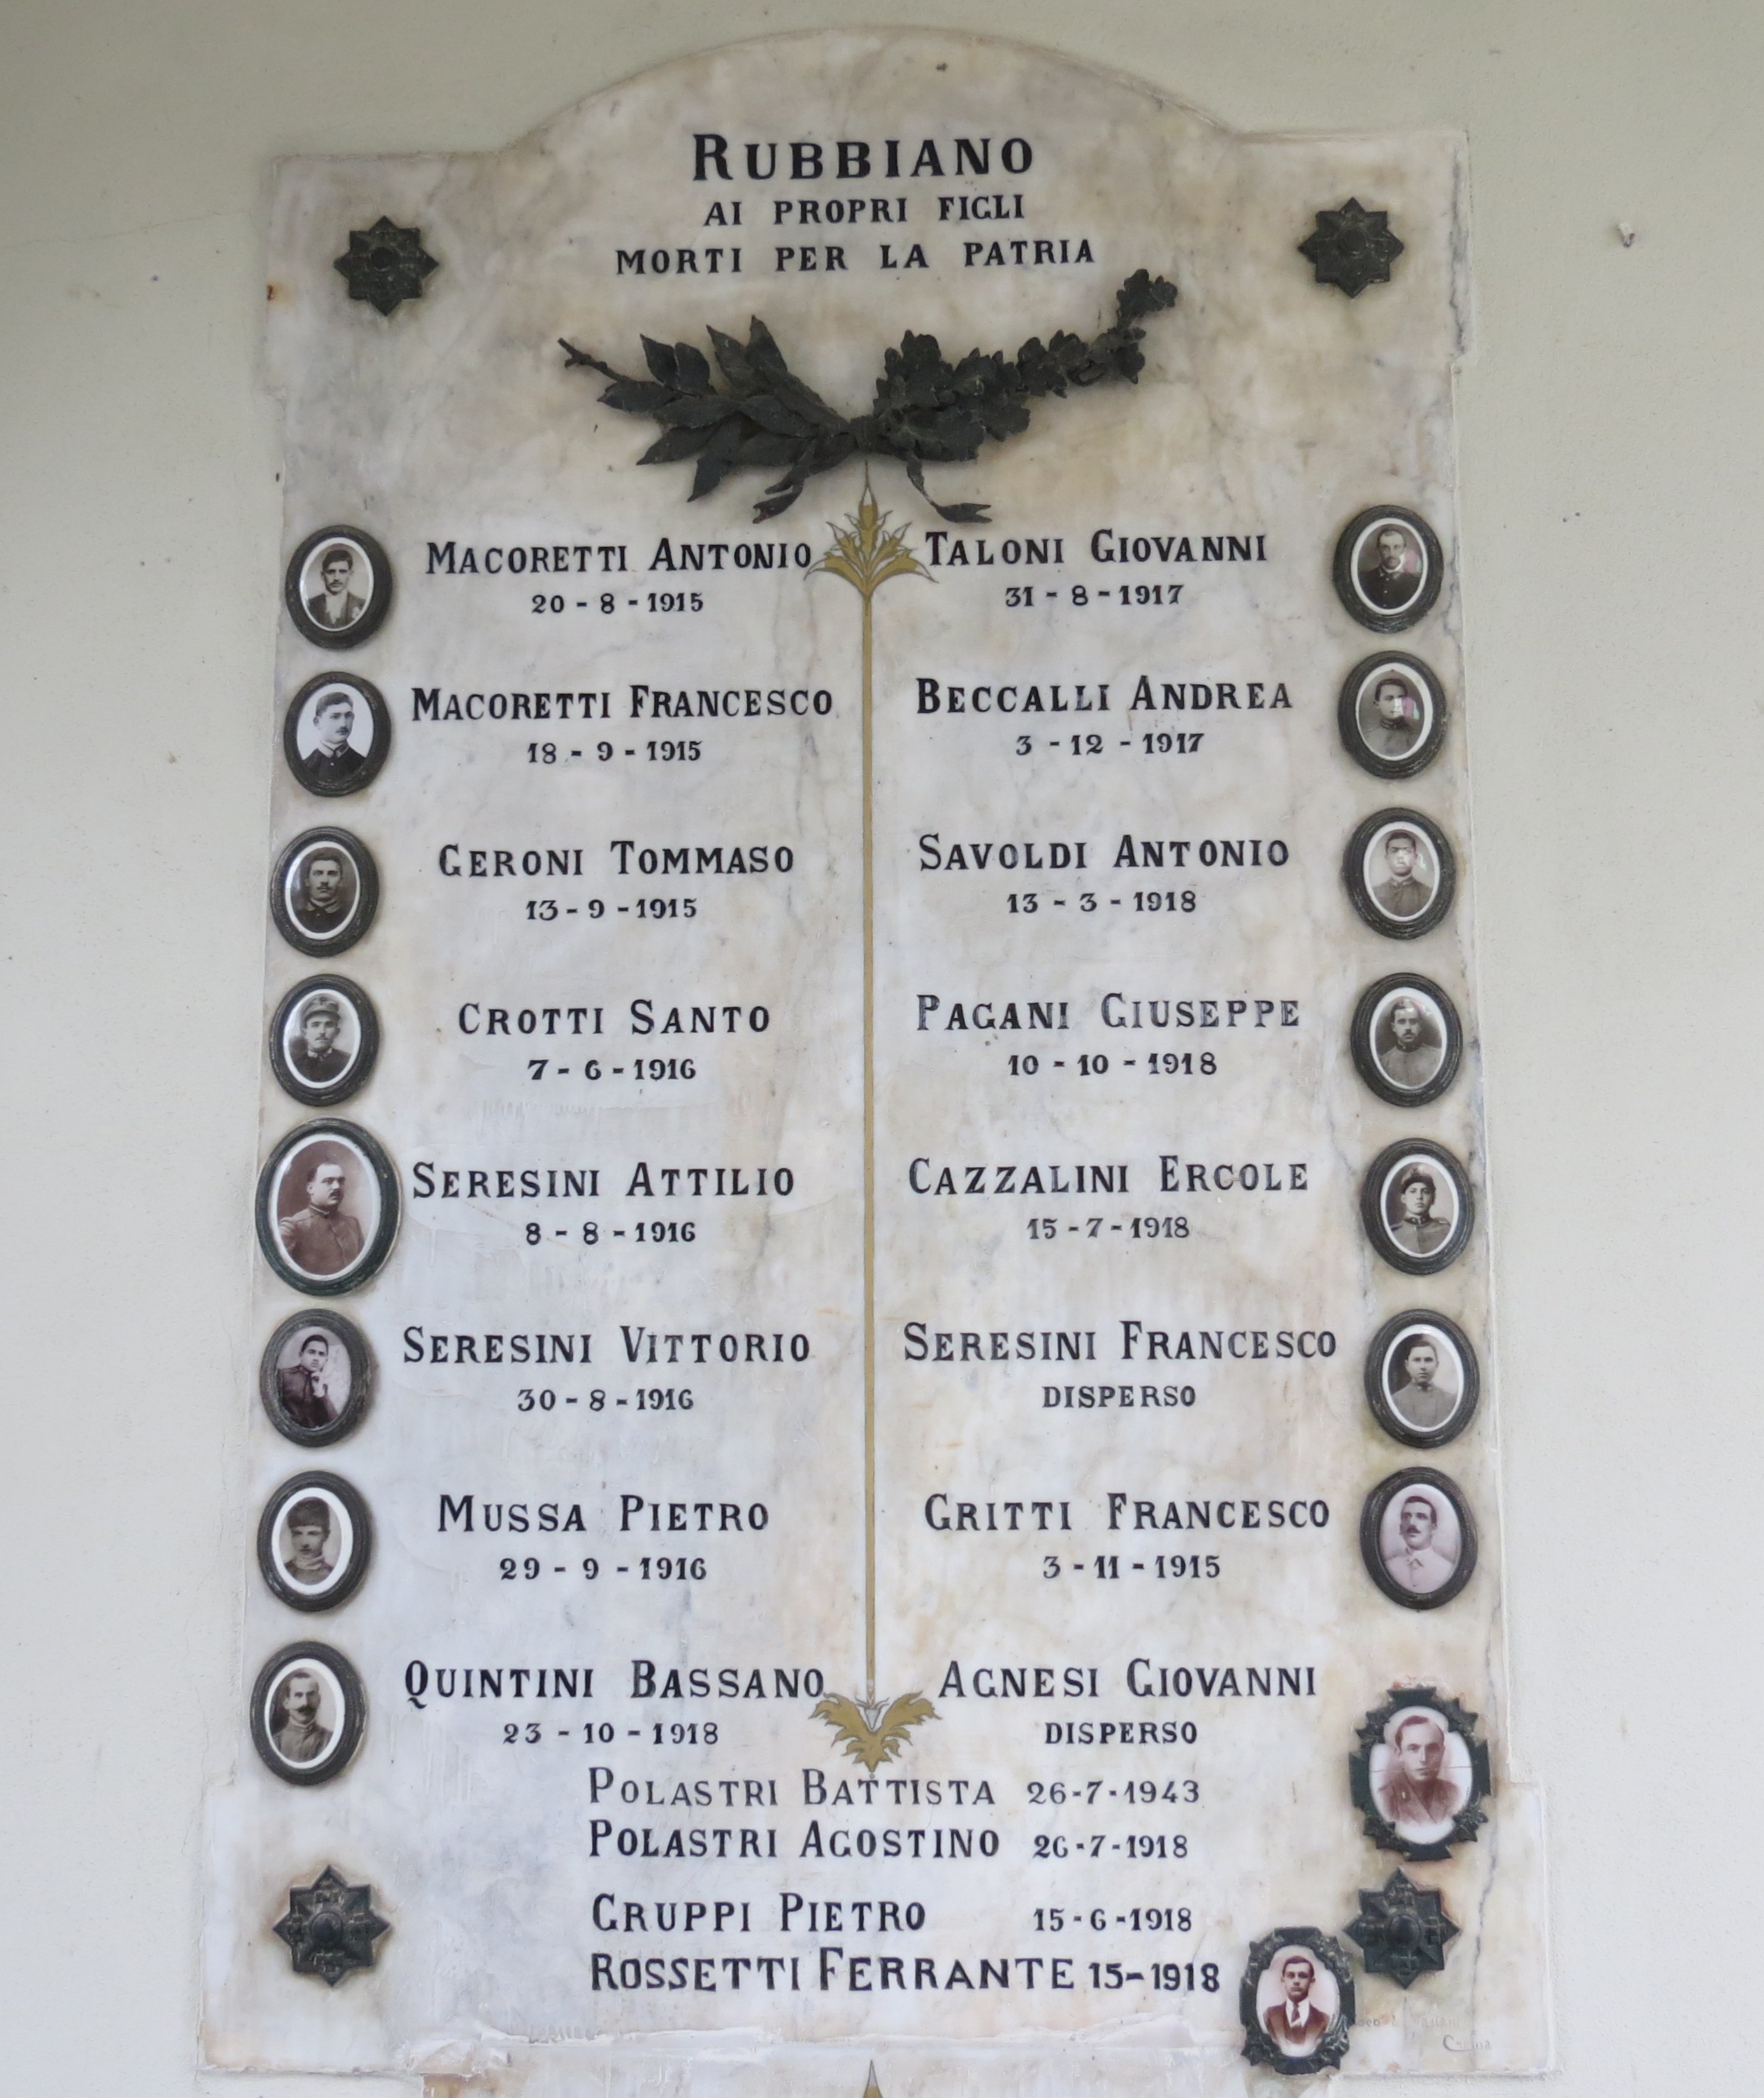 RUBBIANO
AI PROPRI FIGLI
MORTI PER LA PATRIA
MACORETTI ANTONIO
20 - 8 - 1915
MACORETTI FRANCESCO
18 - 9 - 1915
GERONI TOMMASO
13 - 9 - 1915
CROTTI SANTO
7 - 6 - 1916
SERESINI ATTILIO
8 - 8 - 1916
SERESINI VITTORIO
30 - 8 - 1916
MUSSA PIETRO
29 - 9 - 1916
QUINTINI BASSANO
23 - 10 - 1918
TALONI GIOVANNI
31 - 8 - 1917
BECCALLI ANDREA
3 - 12 - 1917
SAVOLDI ANTONIO
13 - 3 - 1918
PAGANI GIUSEPPE
10 - 10 - 1918
CAZZALINI ERCOLE
15 - 7 - 1918
SERESINI FRANCESCO
DISPERSO
GRITTI FRANCESCO
3 - 11 - 1915
AGNESI GIOVANNI
DISPERSO
POLASTRI BATTISTA 26-7-1943
POLASTRI AGOSTINO 26-7-1918
GRUPPI PIETRO 15-6-1918
ROSSETTI FERRANTE 15-1918